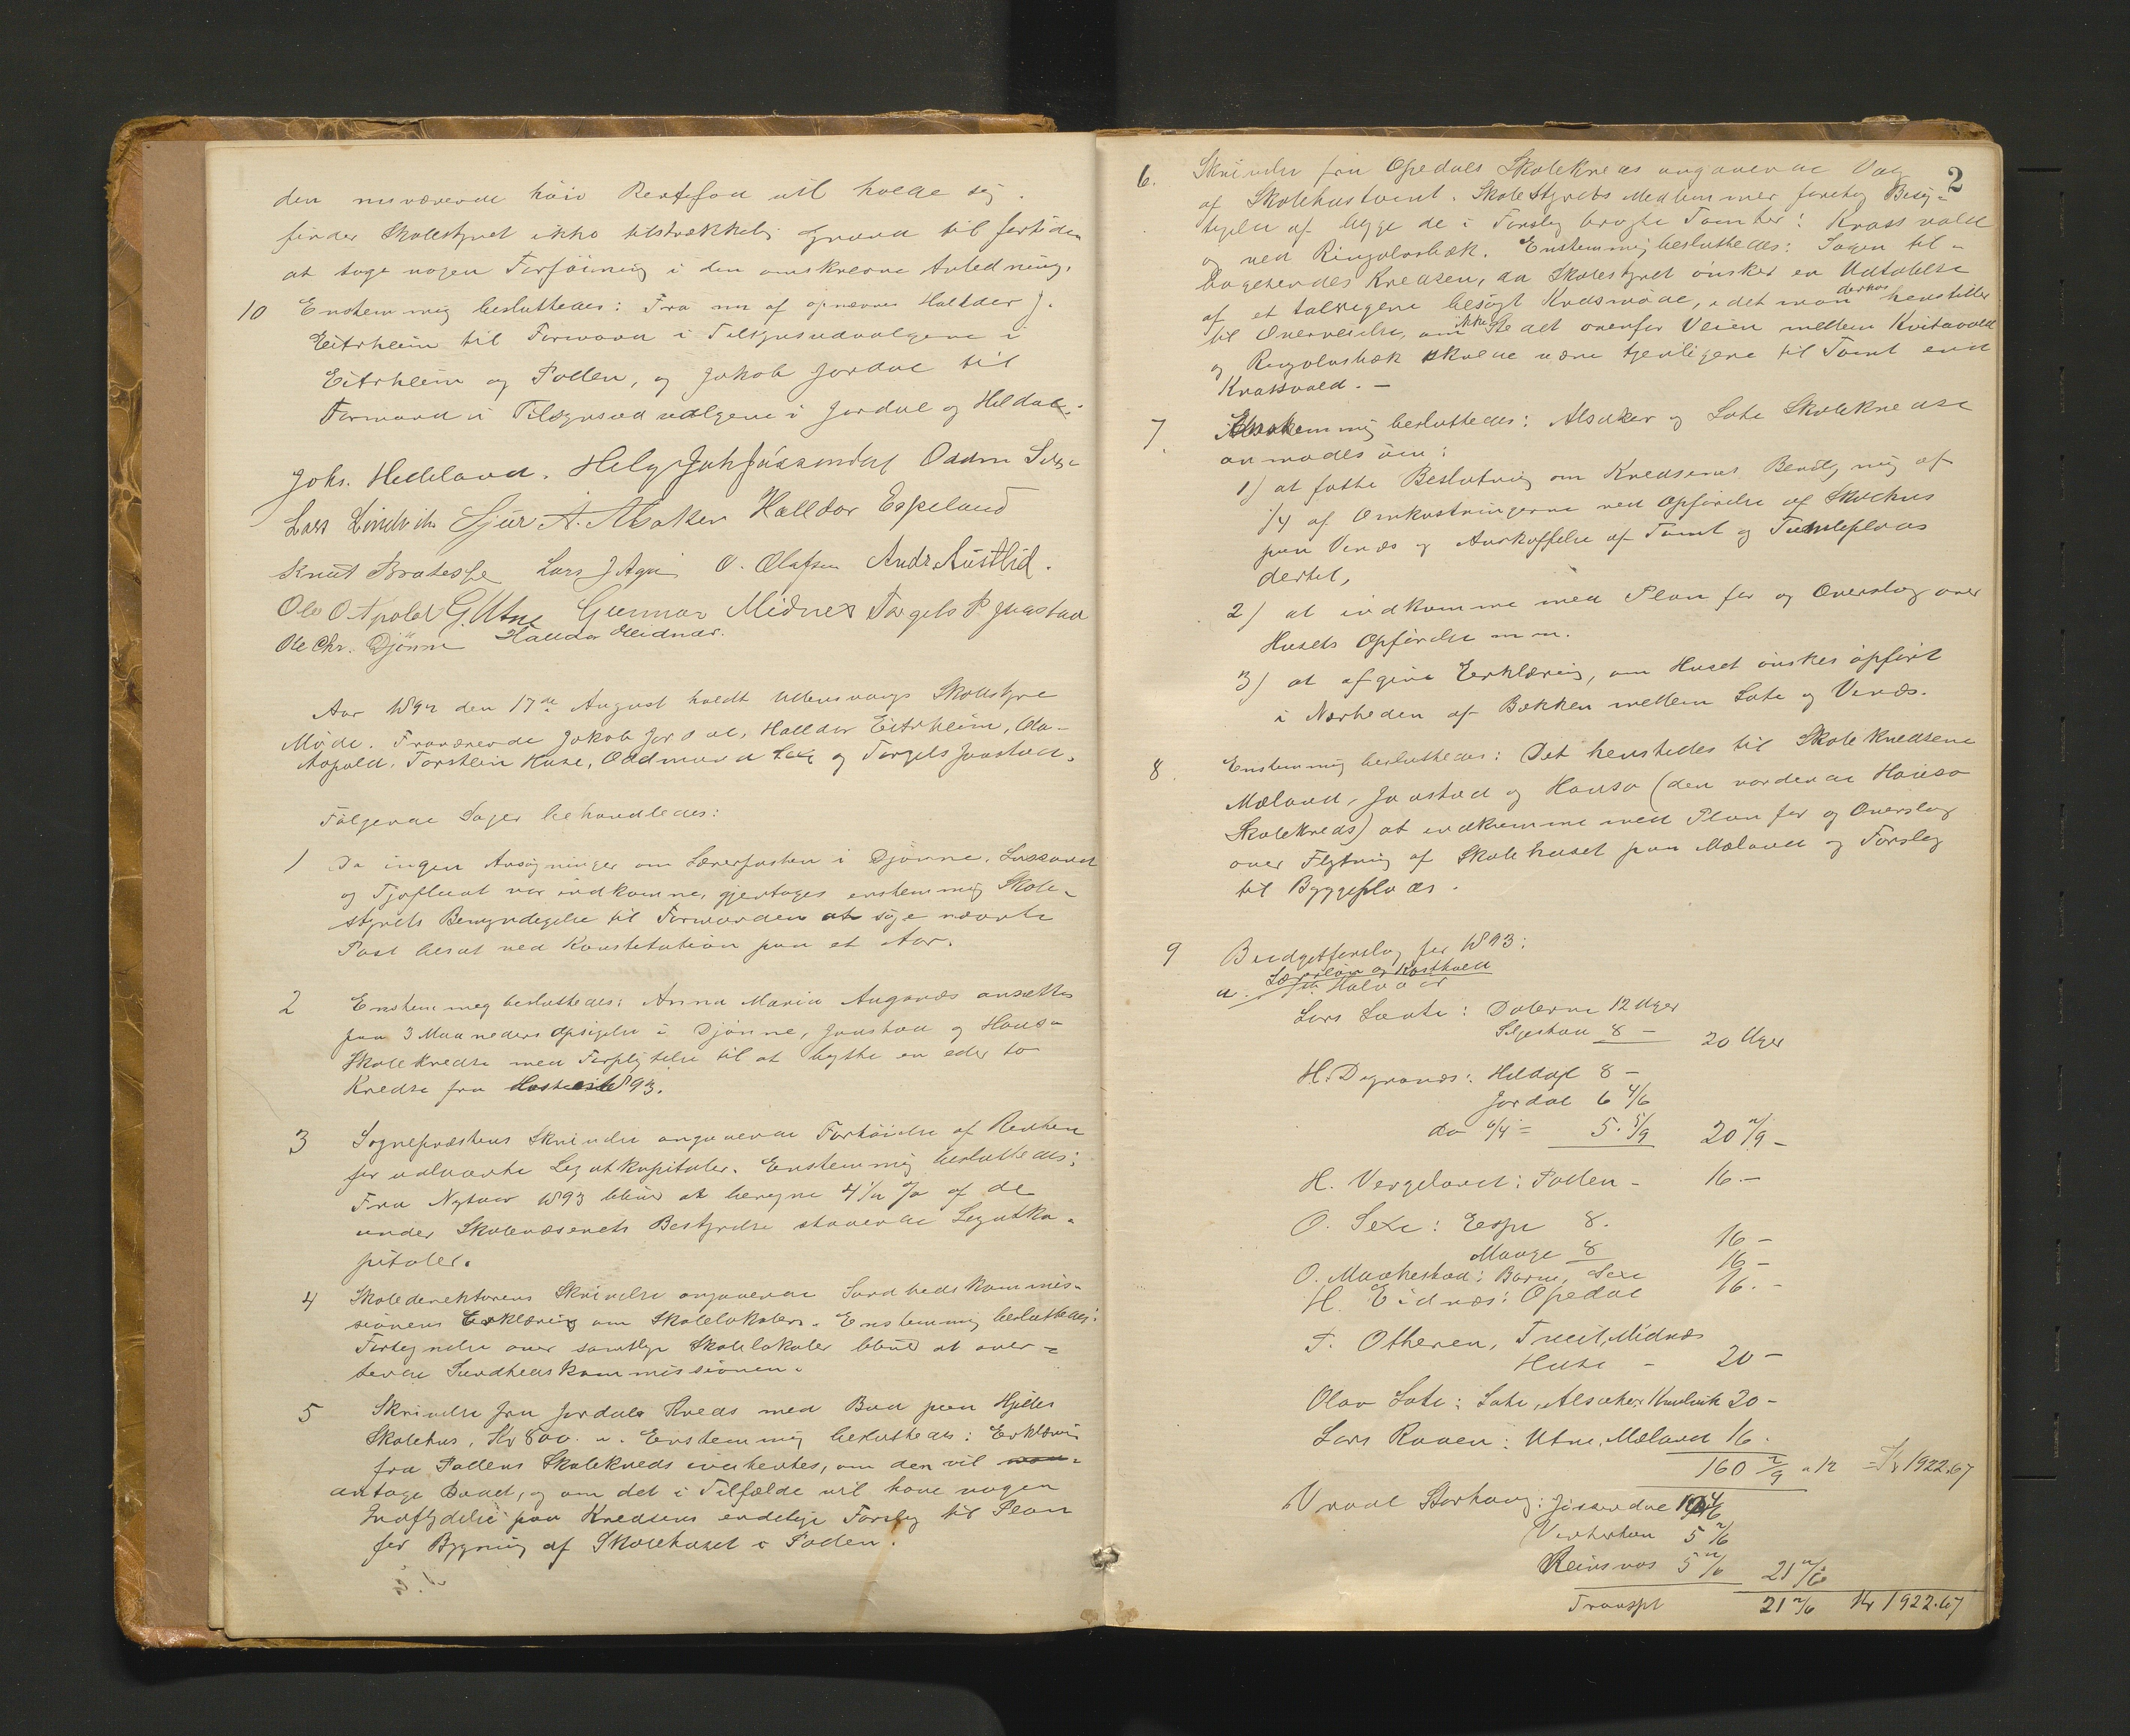 den nuværende høie Rentefod vil holde sig.
finder Skolestyret ikke tilstrækkelig Grund til fortiden
at tage nogen Forføining i den omskrevne Anledning.
10 Enstemmig besluttedes: Fra nu af opnævnes Halldor J.
Eitrheim til Formand i Tilsynsudvalgene i
Eitrheim og Tollen, og Jakob Jordal til
Formand i Tilsynsudvalgene i Jordal og Hildal.
Johs. Hedeland. Helge Johs Jøssendal Oddm Sexe
Lars Lindvik Sjur A. Alsaker Halldor Espeland
Knut Bratespe Lars J Aga O. Olafsen Andr Austlid.
Ole O Apold G. Utne Gunnar Midnes Torgels P Jaastad
Ole Chr. Djønne Halldor Meidnæs.
Aar 1892 den 17de August holdt Ullensvangs Skolestyre
Møde. Fraværende Jakob Jordal, Halldor Eitrheim, Ola
Aapold, Torstein Huse, Oddmund Sexe og Torgels Jaastad.
Følgende Sager behandledes:
1 Da ingen Ansøgninger om Lærerposten i Djønne, Lussand
og Tjoflaat var indkomne, gjentages enstemmig Skole-
styrets Bemyndigelse til Formanden at søge nævnte
Post besat ved Konstitution paa et Aar.
2 Enstemmig besluttedes: Anna Maria Auganæs ansættes
paa 3 Maaneders Opsigelse i Djønne, Jaastad og Hauso
Skolekredse med Forpligtelse til at bytte en eder to
Kredse fra 1893.
3 Sognepræstens Skrivelse angaaende Forhøielse af Renten
for udlaante Legatkapitaler. Enstemmig besluttedes:
Fra Nytaar 1893 bliver at beregne 4 1/2 % af de
under Skolevæsenets Bestyrelse staaende Legatka-
pitaler.
4 Skoledirektørens Skrivelse angaaende Sundhedskommis-
sionens Erklæring om Skolelokaler. Enstemmig besluttedes:
Fortegnelse over samtlige Skolelokaler bliver at over-
sende Sundhedskommissionen.
5 Skrivelse fra Jordals Kreds med Bud paa Hjelles
Skolehus, Kr 800. Enstemmig besluttedes: Erklæring
fra Tollens Skolekreds indhentes, om den vil
antage Budet, og om det i Tilfælde vil have nogen
Indflydelse paa Kredsens endelige Forslag til Plan
for Bygning af Skolehuset i Tollen.
2
6. Skrivelse fra Opedals Skolekreds angaaende Valg
af Skolehustomt. Skolestyrets Medlemmer foretog Besig-
tigelse af begge de i Forslag bragte Tomter: Krossvold
og ved Ringolvsbæk. Enstemmig besluttedes: Sagen til-
bagesendes Kredsen, da Skolestyret ønsker en Udtalelse
af et talrigere besøgt Kredsmøde, idet man derhos henstiller
til Overveielse, om ikke Stedet ovenfor Veien mellem Kvitavold
og Ringolvsbæk skulde være tjenligere til Tomt end
Krossvold. -
7. Enstemmig besluttedes: Alsaker og Lote Skolekredse
anmodes om:
1) at fatte Beslutning om Kredsenes Bevilgning af
1/4 af Omkostningerne ved Opførelse af Skolehus
paa Vinæs og Anskaffelse af Tomt og Tumleplads
dertil,
2) at indkomme med Plan for og Overslag over
Husets Opførelse m m.
3) at afgive Erklæring, om Huset ønskes opført
i Nærheden af Bækken mellem Lote og Vinæs.
8. Enstemmig besluttedes: Det henstilles til Skolekredsene
Mæland, Jaastad og Hauso (den vordende Hauso
Skolekreds) at indkomme med Plan for og Overslag
over Flytning af Skolehuset paa Mæland og Forslag
til Byggeplads.
9 Budgetforslag for 1893:
a. Lærerløn og Kosthold
Halvaar
Lars Laate: Dalerne 12 Uger
Seljestad 8 - 20 Uger
H. Digranæs: Hildal 8 -
Jordal 6 4/6
do 6/4 = 5. 5/9 20 2/9 -
H. Vergeland: Tollen - 16. -
O. Sexe: Espe 8.
Mauge 8 16 -
O. Maakestad: Børve, Sexe 16 -
H. Eidnæs: Opedal 16. -
T. Otheren, Treit, Midnæs
Huse - 20 -
Olav Lote: Lote, Alsaker, 20 -
Lars Raaen: Utne, Mæland 16.
160 2/9 a 12 = Kr 1922.67
Vraal Storhaug: Jøssendal
5 2/6
Reinsnos 5 2/6 21 2/6
Transpt 21 2/6 Kr 1922.67